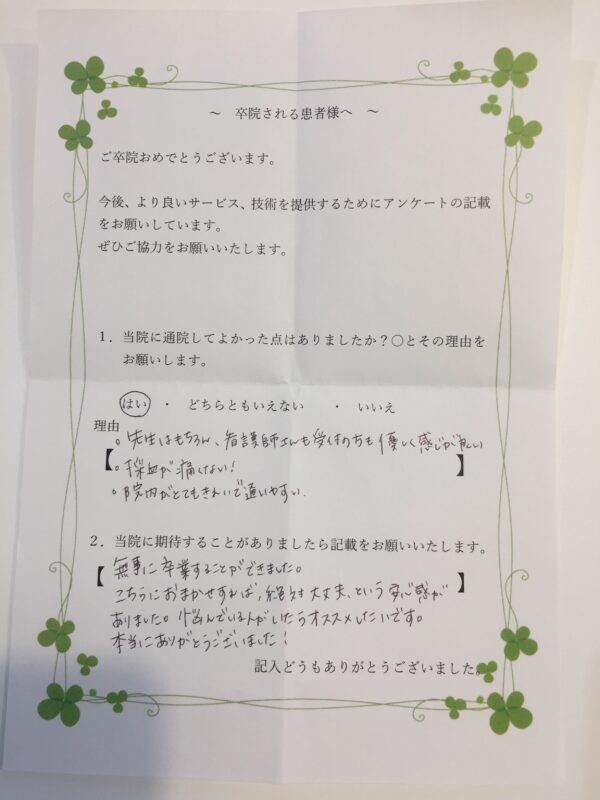 ～ 卒院される患者様へ ～
ご卒院おめでとうございます。
今後、より良いサービス、技術を提供するためにアンケートの記載
をお願いしています。
ぜひご協力をお願いいたします。
１．当院に通院してよかった点はありましたか？○とその理由を
お願いします。
はい ・ どちらともいえない ・ いいえ
理由
【。先生はもちろん、看護師さんも受付の方も優しく感じが良い
。採血が痛くない！
。院内がとてもきれいで通いやすい.】
２．当院に期待することがありましたら記載をお願いいたします。
【無事に卒業することができました。
こちらにおまかせすれば,絶対大丈夫、という安心感が
ありました。悩んでいる人がいたらオススメしたいです。
本当にありがとうございました！】
記入どうもありがとうございました。